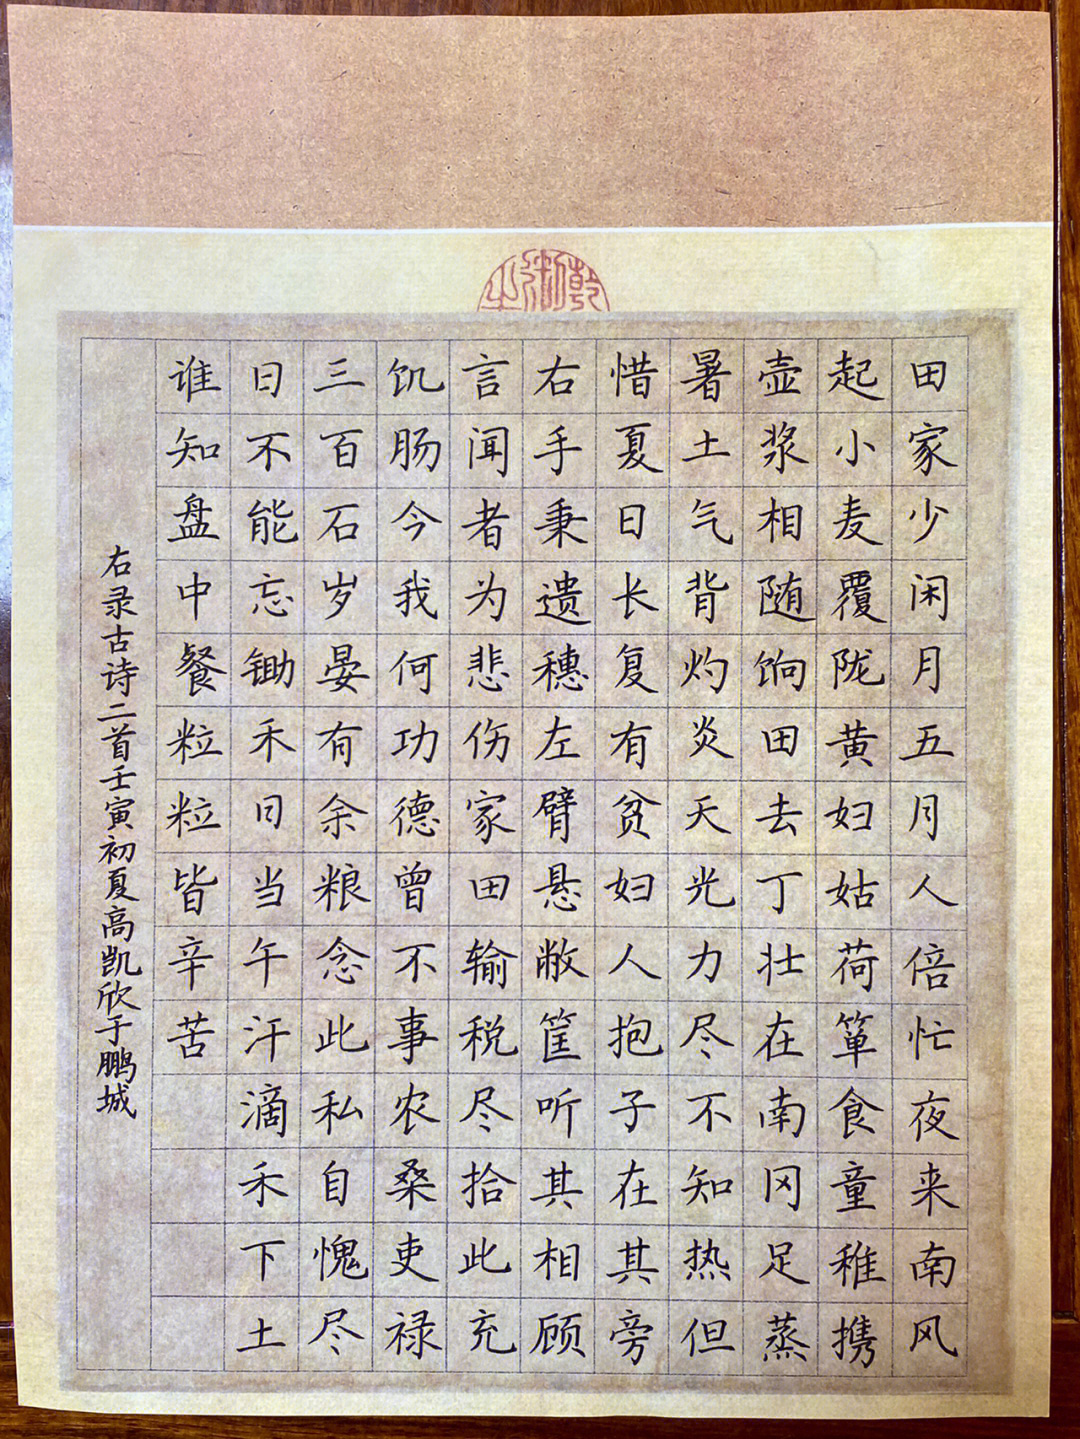 田家少闲月五月人倍忙夜来南风
起小麦覆陇黄妇姑荷箪食童稚携
壶浆相随饷田去丁壮在南冈足蒸
暑土气背灼炎天光力尽不知热但
惜夏日长复有贫妇人抱子在其旁
右手秉遗穗左臂悬敝筐听其相顾
言闻者为悲伤家田输税尽拾此充
饥肠今我何功德曾不事农桑吏禄
三百石岁晏有余粮念此私自愧尽
日不能忘锄禾日当午汗滴禾下土
谁知盘中餐粒粒皆辛苦
右录古诗二首壬寅初夏高凯欣于鹏城